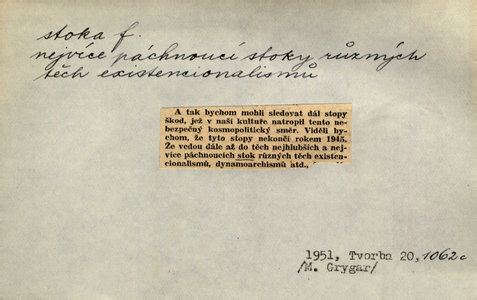 stoka f.
nejvíce páchnoucí stoky různých
těch existencionalismů
A tak bychom mohli sledovat dál stopy
škod, jež v naší kultuře natropil tento ne-
bezpečný kosmopolitický směr. Viděli by-
chom, že tyto stopy nekončí rokem 1945.
Že vedou dále až do těch nejhlubších a nej-
více páchnoucích stok různých těch existen-
cionalismů, dynamoarchismů atd.,
1951, Tvorba 20, 1062c
/M. Grygar/